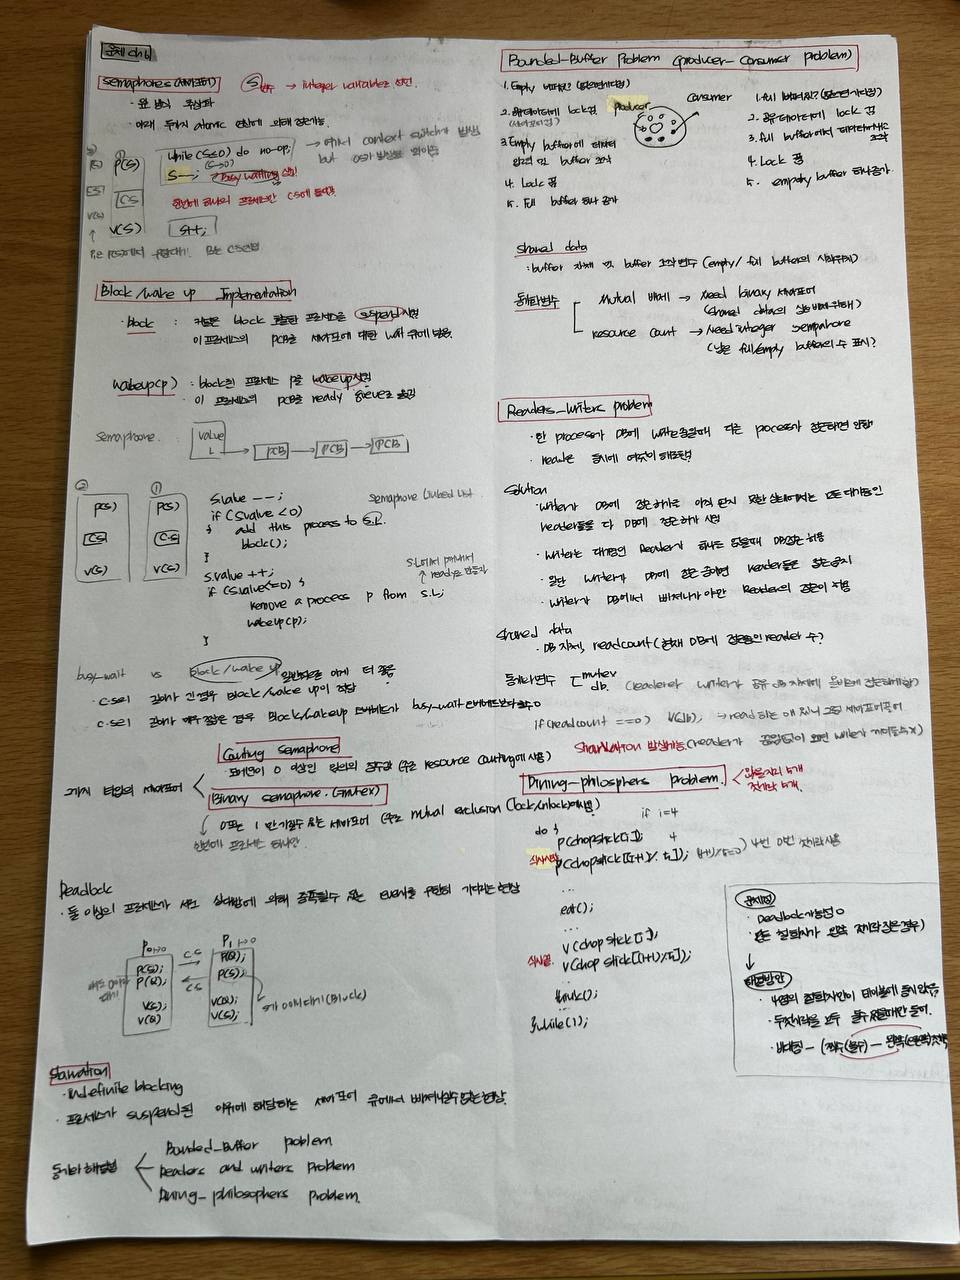 운영체제 ch6
Semaphores (세마포어)
S 변수 → integer variable로 선언
· 앞 방식의 추상화
· 아래 두가지 atomic 연산에 의해 접근가능
② ①
P(S) P(S)
while (S≤0) do no-op;
S--;
→ Busy waiting
한번에 하나의 프로세스만 CS에 들어감
CS CS
V(S) V(S)
S++;
Block/wake up Implementation
· block : 커널은 block 호출한 프로세스를 suspend 시킴
이 프로세스의 PCB를 세마포어에 대한 wait 큐에 넣음.
wakeup(p) : block된 프로세스 P를 wakeup 시킴
· 이 프로세스의 PCB를 ready queue로 옮김
Semaphore : value
L → PCB → PCB → PCB
② ①
P(S) P(S)
CS CS
V(S) V(S)
S.value --;
Semaphore Linked List
if (S.value < 0)
{ add this process to S.L.
block();
}
S.value ++;
if (S.value <= 0) {
remove a process P from S.L;
wakeup(p);
}
busy-wait vs block/wake up 일반적으로 이게 더 좋음
· c.sel 길이가 긴경우 Block/wake up이 적당
· c.sel 길이가 매우 짧은 경우 Block/wakeup 오버헤드가 busy-wait 오버헤드보다 클수 o
2가지 타입의 세마포어
Couting semaphore
· 도메인이 0 이상인 임의의 정수값 (주로 resource counting에 사용)
Binary semaphore. (=mutex)
0또는 1 만 가질수 있는 세마포어 (주로 mutual exclusion (lock/unlock)에사용)
Deadlock
· 둘 이상의 프로세스가 서로 상대방에 의해 충족될수 있는 event를 무한히 기다리는 현상
P0 P1
CS
P(S); P(Q);
P(Q); P(S);
CS
V(S); V(Q);
V(Q); V(S);
Starvation
· indefinite blocking
· 프로세스가 suspend된 이유에 해당하는 세마포어 큐에서 빠져나갈수 없는 현상.
Bounded-Buffer problem
Readers and writers problem
Dining-philosophers problem.
Bounded-Buffer Problem (producer-consumer problem)
producer
consumer
1. Empty 버퍼있나?
2. 공유데이터에 lock 검
3. Empty buffer에 데이터
입력 및 buffer 조작
4. Lock 풂
5. full buffer 하나 증가
1. full 버퍼있나?
2. 공유데이터에 lock 검
3. full buffer에서 데이터
4. Lock 풂
5. empty buffer 하나 증가
Shared data
: buffer 자체 및 buffer 조작변수 (empty/ full buffer의 시작위치)
동기화변수
mutual 배제 → need binary 세마포어
(shared data의
resource count → need integer semaphore
(남은 full/empty buffer의 수 표시)
Readers-Writers problem
· 한 process가 DB에 write중일때 다른 process가 접근하면 안됨
· read는 동시에 여럿이 해도됨.
Solution
· Writer가 DB에 접근 허가를 아직 얻지 못한 상태에서는 모든 대기중인
reader들을 다 DB에 접근하게 해줌
· Writer는 대기중인 Reader가 하나도 없을때 DB접근 허용
· 일단 Writer가 DB에 접근중이면 reader들은 접근금지
· Writer가 DB에서 빠져나가야만 Reader의 접근이 허용
Shared data
· DB 자체, readcount (현재 DB에 접근중인 reader 수)
동기화변수 mutex
db.
if (readcount == 0) V(db);
Starvation 발생가능
Dining-philosphers problem.
do { if i=4
P(chopstick[i]); 4
식사시작 P(chopstick[(i+1)%5]);
...
eat();
...
식사끝 V(chopstick[i]);
V(chop stick[(i+1)%5]);
...
think();
} while(1);
문제점
· Deadlock가능성 o
(모든 철학자가 왼쪽 젓가락 잡은경우)
해결방안
· 4명의 철학자만이 테이블에
· 두젓가락을 모두 들수 있을때만 들어.
· 비대칭 -